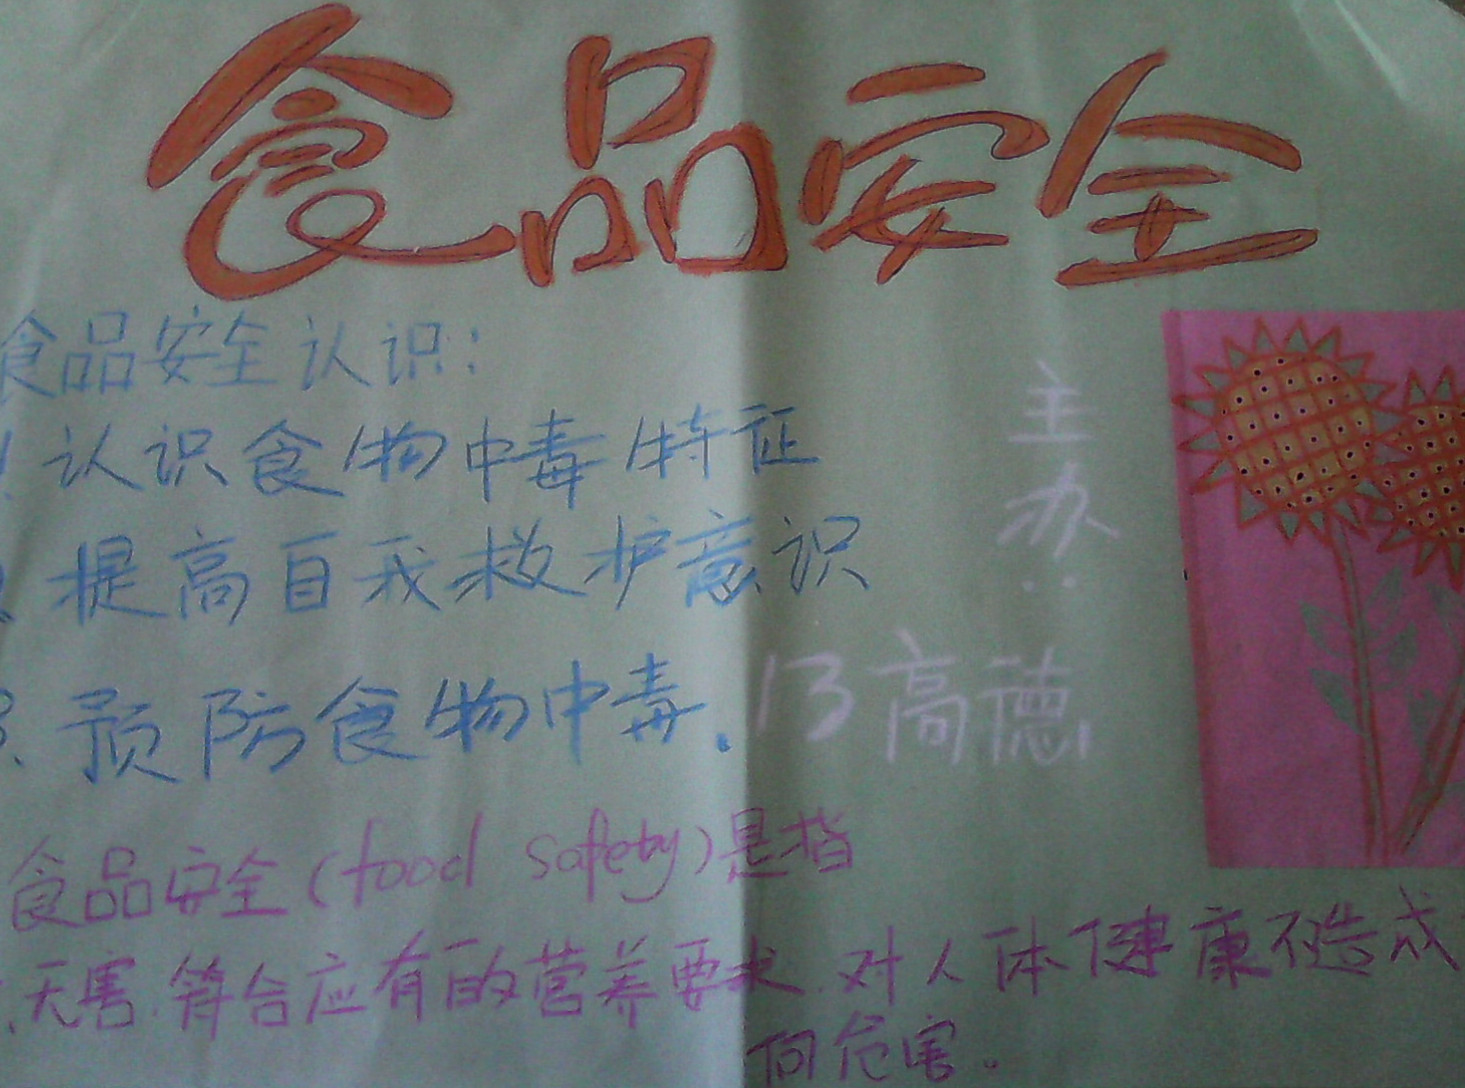 食品安全
食品安全认识:
1.认识食物中毒特征
2.提高自我救护意识
3.预防食物中毒.
主办:
13高德
食品安全(food safety)是指
无害.符合应有的营养要求.对人体健康不造成
何危害。